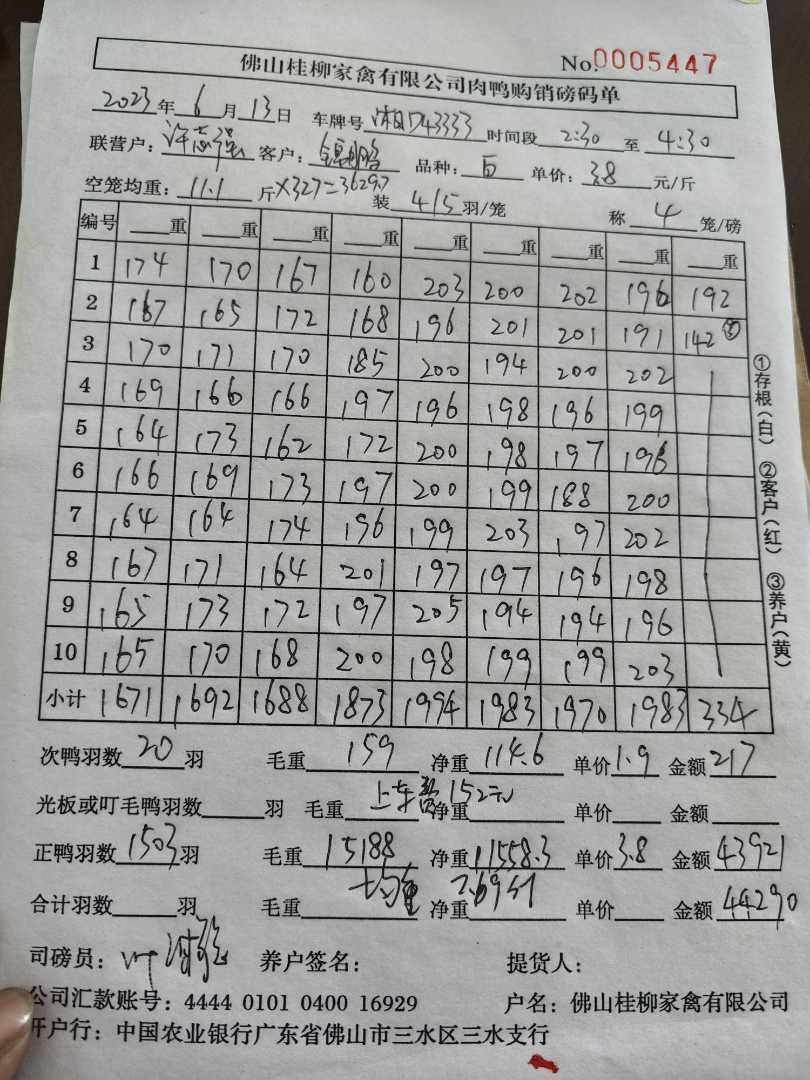 No.0005447
佛山桂柳家禽有限公司肉鸭购销磅码单
2023年6月13日 车牌号 湘D43333 时间段 2:30 至 4:30
联营户: 许志强 客户: 品种: 白 单价: 3.8 元/斤
空笼均重: 11.1 斤×327=3629.7 装 4/5 羽/笼 称 4 笼/磅
编号 重 重 重 重 重 重 重 重 重
1 174 170 167 160 203 200 202 196 192
2 167 165 172 168 196 201 201 191 142③
3 170 171 170 185 200 194 200 202
4 169 166 166 197 196 198 196 199
5 164 173 162 172 200 198 197 196
6 166 169 173 197 200 199 188 200
7 164 164 174 196 199 203 197 202
8 167 171 164 201 197 197 196 198
9 165 173 172 197 205 194 194 196
10 165 170 168 200 198 199 199 203
小计 1671 1692 1688 1873 1994 1983 1970 1983 334
①存根(白) ②客户(红) ③养户(黄)
次鸭羽数 20 羽 毛重 159 净重 114.6 单价 1.9 金额 217
光板或叮毛鸭羽数 羽 毛重 上车 152元 净重 单价 金额
正鸭羽数 1503 羽 毛重 15188 净重 11558.3 单价 3.8 金额 43921
合计羽数 羽 毛重 均重 净重 7.69斤 单价 金额 44290
司磅员: 养户签名: 提货人:
公司汇款账号: 4444 0101 0400 16929 户名: 佛山桂柳家禽有限公司
开户行: 中国农业银行广东省佛山市三水区三水支行